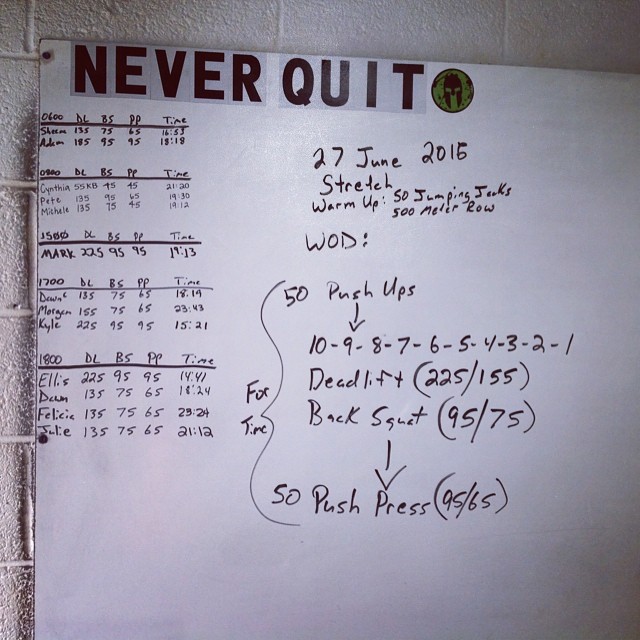 NEVER QUIT
0600 DL BS PP Time
Sheena 135 75 65 16:53
Adam 185 95 95 18:18
0900 DL BS PP Time
Cynthia 55KB 45 45 21:20
Pete 135 95 65 19:30
Michele 135 75 45 19:12
1500 DL BS PP Time
MARK 225 95 95 19:13
1700 DL BS PP Time
Dawn 135 75 65 18:19
Morgan 155 75 65 23:43
Kyle 225 95 95 15:21
1800 DL BS PP Time
Ellis 225 95 95 14:41
Dawn 135 75 65 18:24
Felicia 135 75 65 23:24
Julie 135 75 65 21:12
27 June 2015
Stretch
Warm Up: 50 Jumping Jacks
500 Meter Row
WOD:
For Time
50 Push Ups
10-9-8-7-6-5-4-3-2-1
Deadlift (225/155)
Back Squat (95/75)
50 Push Press (95/65)